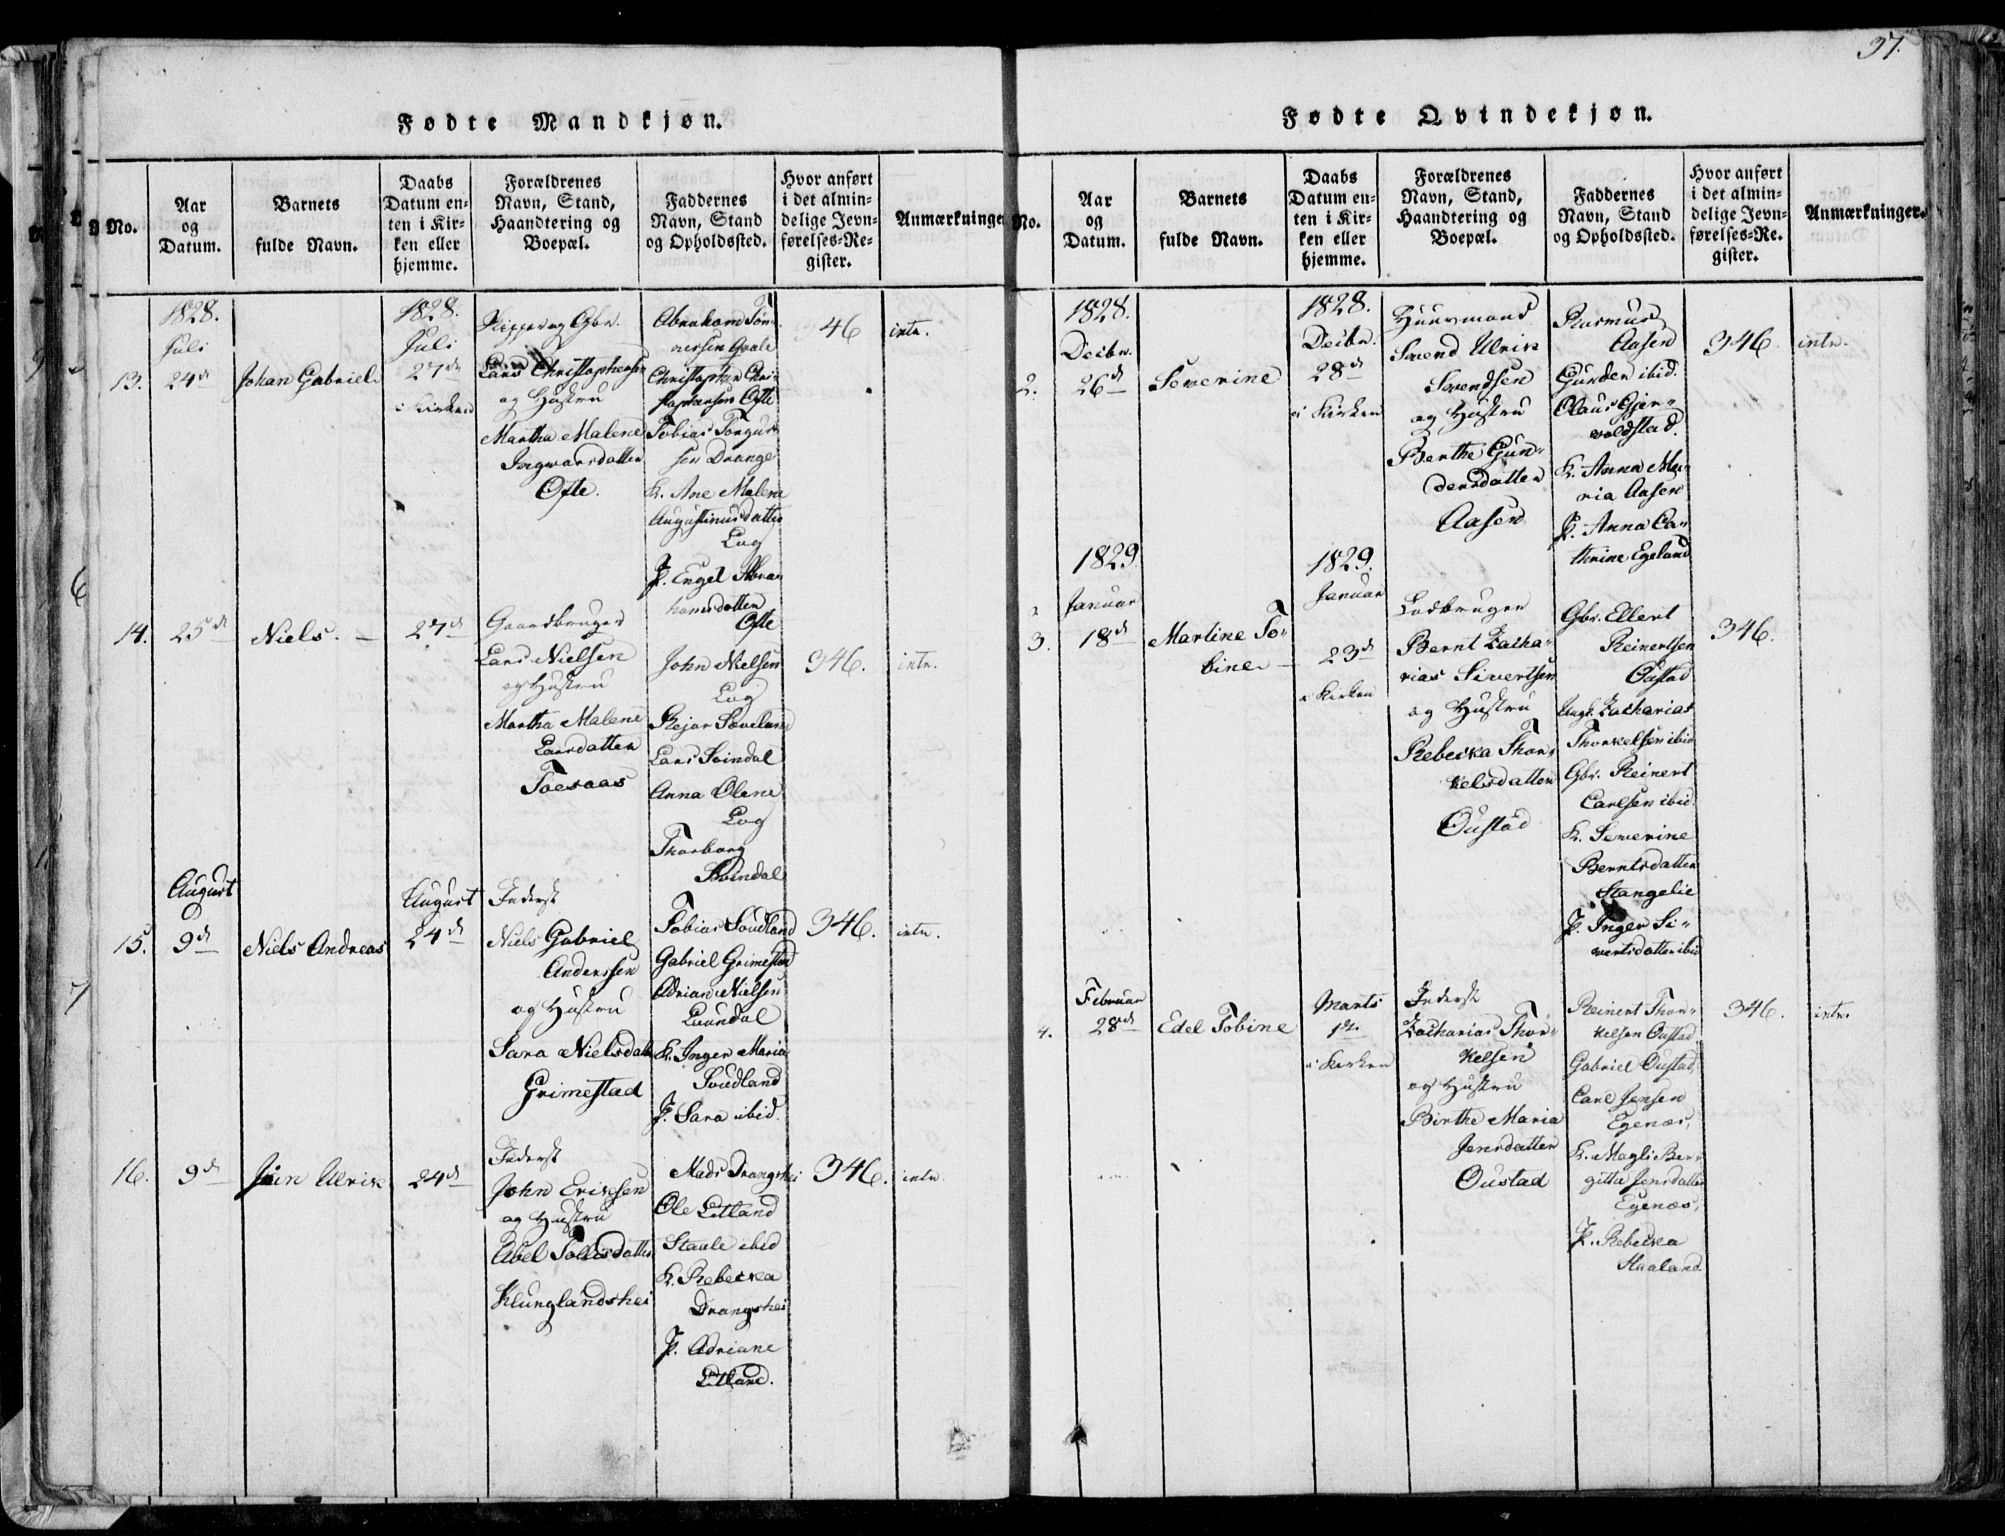 37.
Fødte Mandkjøn.
No.
Aar
og
Datum.
Barnets
fulde Navn.
Daabs
Datum en-
ten i Kir-
ken eller
hjemme.
Forældrenes
Navn, Stand,
Haandtering og
Boepæl.
Faddernes
Navn, Stand
og Opholdssted.
Hvor anført
i det almin-
delige Jevn-
førelses-Re-
gister.
Anmærkninger
13.
1828.
Juli
24de
Johan Gabriel
1828.
Juli
27de
i Kirken
og Gbr.
Lars Christophersen
og Hustru
Martha Malene
Ingwarsdatter
Ofte.
Abraham Tøn-
nessen
Christopher Chri-
stophersen Ofte
Tobias Torgus-
sen Drange
K. Ane Malene
Augustinusdatter
Log
P. Engel Abra-
hamsdatter
Ofte
346
intr.
14.
25de
Niels. —
27de
Gaardbruger
Lars Nielsen
og Hustru
Martha Malene
Larsdatter
Toesaas
John Nielsen
Log
Rejar Søveland
Lars Svindal
Anna Olene
Log
Thorborg
Svindal
346.
intr.
15.
August
9de
Niels Andreas
August
24de
Inderst
Niels Gabriel
Anderssen
og Hustru
Sara Nielsdatt
Grimestad
Tobias Soudland
Gabriel Grimestad
Adrian Nielsen
Luundal
K. Inger Maria
Soudland
P. Sara ibid.
346.
intr.
16.
9de
Ulrik
24de
Inderst
John Eriksen
og Hustru
Abel Tollisdatter
Klunglandshei
Mads Drangshei
Ole Litland
Staale ibid
K. Rebecka
Drangshei
P. Adriane
Litland.
346.
intr.
Fødte Qvindekjøn.
No.
Aar
og
Datum.
Barnets
fulde Navn.
Daabs
Datum en-
ten i Kir-
ken eller
hjemme.
Forældrenes
Navn, Stand,
Haandtering og
Boepæl.
Faddernes
Navn, Stand
og Opholdssted.
Hvor anført
i det almin-
delige Jevn-
førelses-Re.
gister.
Anmærkninger.
2.
1828.
Decbr.
26de
Severine
1828.
Decbr.
28de
i Kirken
Huusmand
Svend Ulrik
Svendsen
og Hustru
Berthe Gun-
dersdatter
Aasen
Rasmus
Aasen
Gunder ibid.
Olaus Gjer-
voldstad.
K. Anna Ma-
ria Aasen
P. Anna Ca-
thrine Egeland
346.
intr.
3.
1829
Januar
18de
Martine To-
bine —
1829.
Januar
23de
i Kirken
Ladbruger
Bernt Zacha-
rias Sivertsen
og Hustru
Rebecka Thor-
kelsdatter
Oustad
Gbr. Ellert
Reinertsen
Oustad
Ungk. Zacharias
Thorkelsen ibid
Gbr. Reinert
Carlsen ibid.
K. Severine
Berntsdatter
Stangelie
P. Inger Si-
vertsdatter ibid
346.
4.
Februar
28de
Edel Tobine
Marts
1te
i Kirken
Inderst
Zacharias Thor-
kelsen
og Hustru
Birthe Maria
Jensdatter
Oustad
Reinert Thor-
kelsen Oustad.
Gabriel Oustad.
Carl Jensen
Egenæs,
K. Magli Ber-
githe Jensdatter
Egenæs,
P. Rebecka
Haaland
346.
intr.